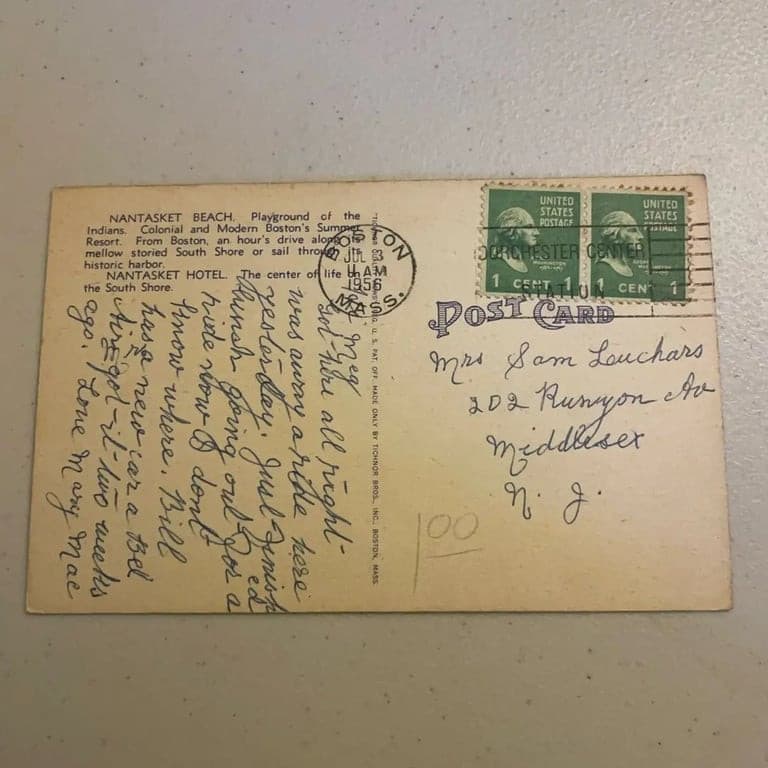 NANTASKET BEACH. Playground of the
Indians. Colonial and Modern Boston's Summer
Resort. From Boston, an hour's drive along its
mellow storied South Shore or sail through its
historic harbor.
NANTASKET HOTEL. The center of life on
the South Shore.
Meg
got here all right-
was away a ride here
yesterday. Just finish
lunch going out for a
ed
ride now & dont
know where. Bill
has a new car a Bel
Air got it two weeks
ago. Love Mary Mac
U. S. PAT. OFF. MADE ONLY BY TICHNOR BROS., INC., BOSTON, MASS.
BOSTON
JUL 3
11 AM
1956
MASS.
UNITED
STATES
POSTAGE
1 CENT 1
UNITED
STATES
POSTAGE
1 CENT 1
DORCHESTER CENTER
STATION
POST CARD
Mrs Sam Leuchars
202 Runyon Av
Middlesex
N. J.
100